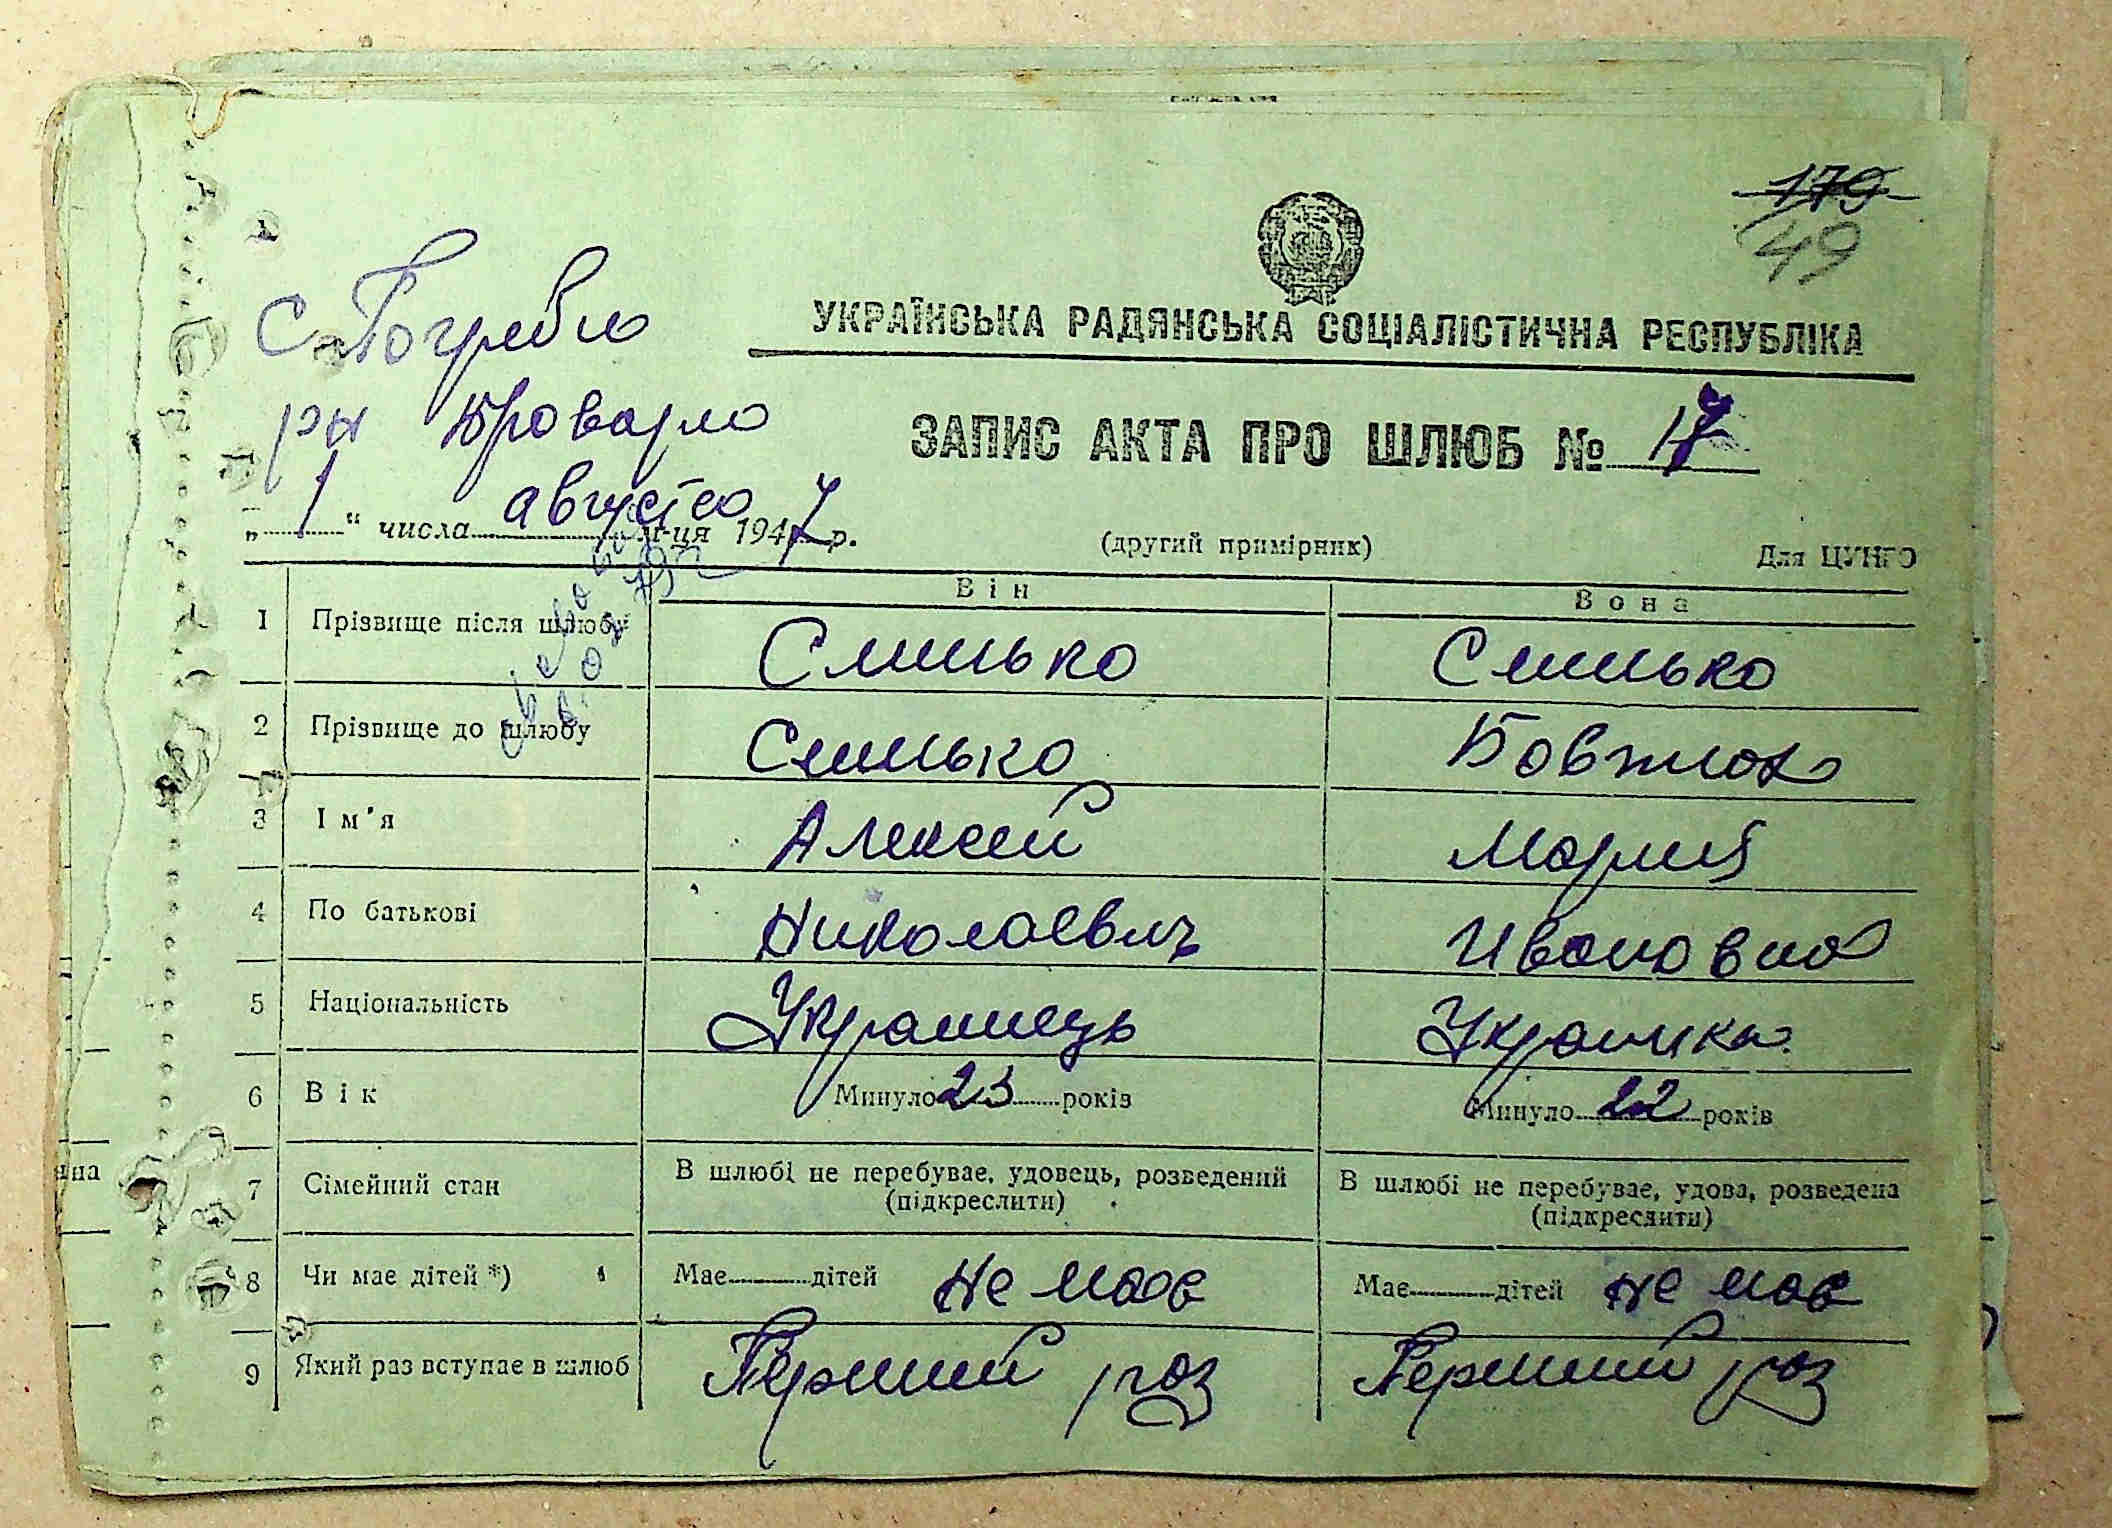 179
49
с Погреби
рн Бровари
УКРАЇНСЬКА РАДЯНСЬКА СОЦІАЛІСТИЧНА РЕСПУБЛІКА
ЗАПИС АКТА ПРО ШЛЮБ № 17
„1“ числа августа м-ця 1947 р.
(другий примірник)
Для ЦУНГО
Він
Вона
1 Прізвище після шлюбу Слинько Слинько
2 Прізвище до шлюбу Слинько Бовжиюк
3 Ім'я Алексей Мария
4 По батькові Николаевич Ивановна
5 Національність Украинець Украинка
6 Вік Минуло 23 років Минуло 22 років
7 Сімейний стан В шлюбі не перебуває, удовець, розведений В шлюбі не перебуває, удова, розведена
(підкреслити) (підкреслити)
8 Чи має дітей *) Має дітей не має Має дітей не має
9 Який раз вступає в шлюб Перший раз Перший раз